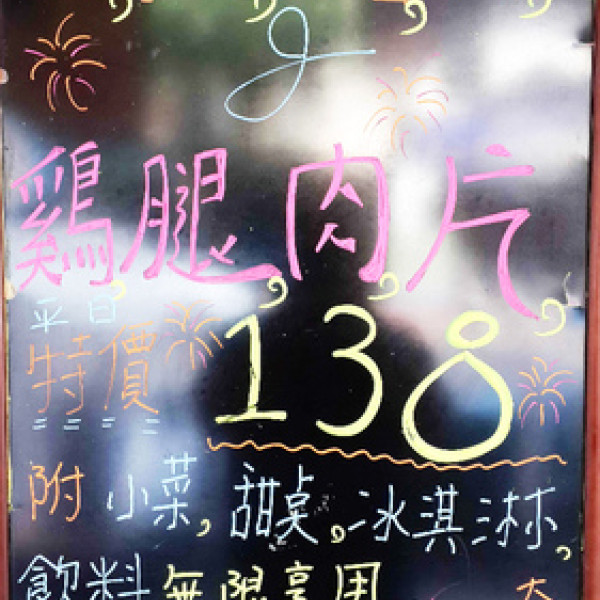 雞腿肉片
平日
特價 138
附小菜,甜桌。冰淇淋,
飲料無限享用